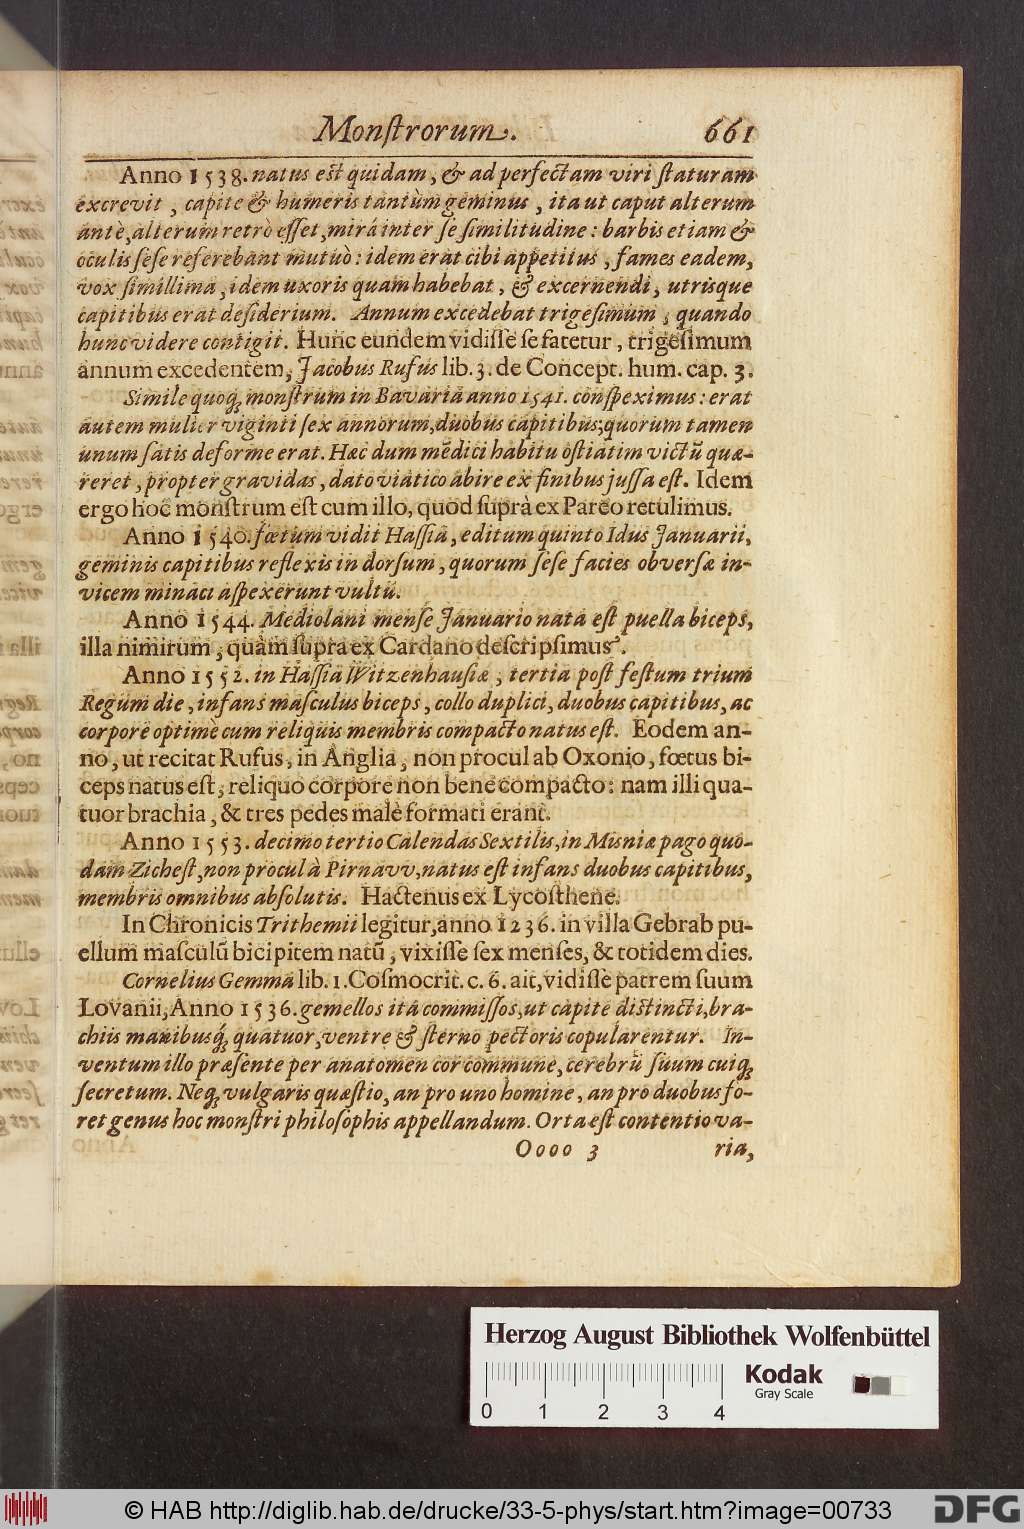 Monſtrorum. 661
Anno 1538. natus eſt quidam, & ad perfectam viri ſtaturam
excrevit, capite & humeris tantùm geminus, ita ut caput alterum
antè, alterum retrò eſſet, mirá inter ſe ſimilitudine: barbis etiam &
oculis ſeſe referebant mutuò: idem erat cibi appetitus, fames eadem,
vox ſimillima, idem uxoris quam habebat, & excernendi, utrisque
capitibus erat deſiderium. Annum excedebat trigeſimum, quando
hunc videre contigit. Hunc eundem vidiſſe ſe fatetur, trigeſimum
annum excedentem, Jacobus Rufus lib. 3. de Concept. hum. cap. 3.
Simile quoq; monſtrum in Bavariâ anno 1541. conſpeximus: erat
autem mulier viginti ſex annorum, duobus capitibus; quorum tamen
unum ſatis deforme erat. Hæc dum mẽdici habitu oſtiatim victũ quæ-
reret, propter gravidas, dato viatico abire ex finibus juſſa eſt. Idem
ergo hoc monſtrum eſt cum illo, quod ſuprà ex Pareo retulimus.
Anno 1540. fœtum vidit Haſſia, editum quinto Idus Januarii,
geminis capitibus reflexis in dorſum, quorum ſeſe facies obverſæ in-
vicem minaci aſpexerunt vultu.
Anno 1544. Mediolani menſe Januario nata eſt puella biceps,
illa nimirum, quàm ſupra ex Cardano deſcripſimus.
Anno 1552. in Haſſia Witzenhauſiæ, tertia poſt feſtum trium
Regum die, infans maſculus biceps, collo duplici, duobus capitibus, ac
corpore optimè cum reliquis membris compacto natus eſt. Eodem an-
no, ut recitat Rufus, in Anglia, non procul ab Oxonio, fœtus bi-
ceps natus eſt, reliquo corpore non bene compacto: nam illi qua-
tuor brachia, & tres pedes malè formati erant.
Anno 1553. decimo tertio Calendas Sextilis, in Miſniæ pago quo-
dam Zicheſt, non procul à Pirnavv, natus eſt infans duobus capitibus,
membris omnibus abſolutis. Hactenus ex Lycoſthene.
In Chronicis Trithemii legitur, anno 1236. in villa Gebrab pu-
ellum maſculũ bicipitem natũ, vixiſſe ſex menſes, & totidem dies.
Cornelius Gemma lib. 1. Coſmocrit. c. 6. ait, vidiſſe patrem ſuum
Lovanii, Anno 1536. gemellos itá commiſſos, ut capite diſtincti, bra-
chiis manibusq; quatuor, ventre & ſterno pectoris copularentur. In-
ventum illo præſente per anatomen cor commune, cerebrũ ſuum cuiq;
ſecretum. Neq; vulgaris quæſtio, an pro uno homine, an pro duobus fo-
ret genus hoc monſtri philoſophis appellandum. Orta eſt contentio va-
Oooo 3 ria,
Herzog August Bibliothek Wolfenbüttel
Kodak
Gray Scale
0 1 2 3 4
© HAB http://diglib.hab.de/drucke/33-5-phys/start.htm?image=00733
DFG